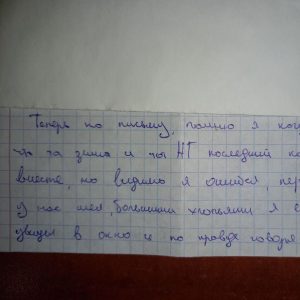 Теперь по письму, помню я ког
что та зима и ты НГ последний
вместе, но видимо я ошибся, пер
у нас шел, большими хлопьями я
увидел в окно и по правде говоря